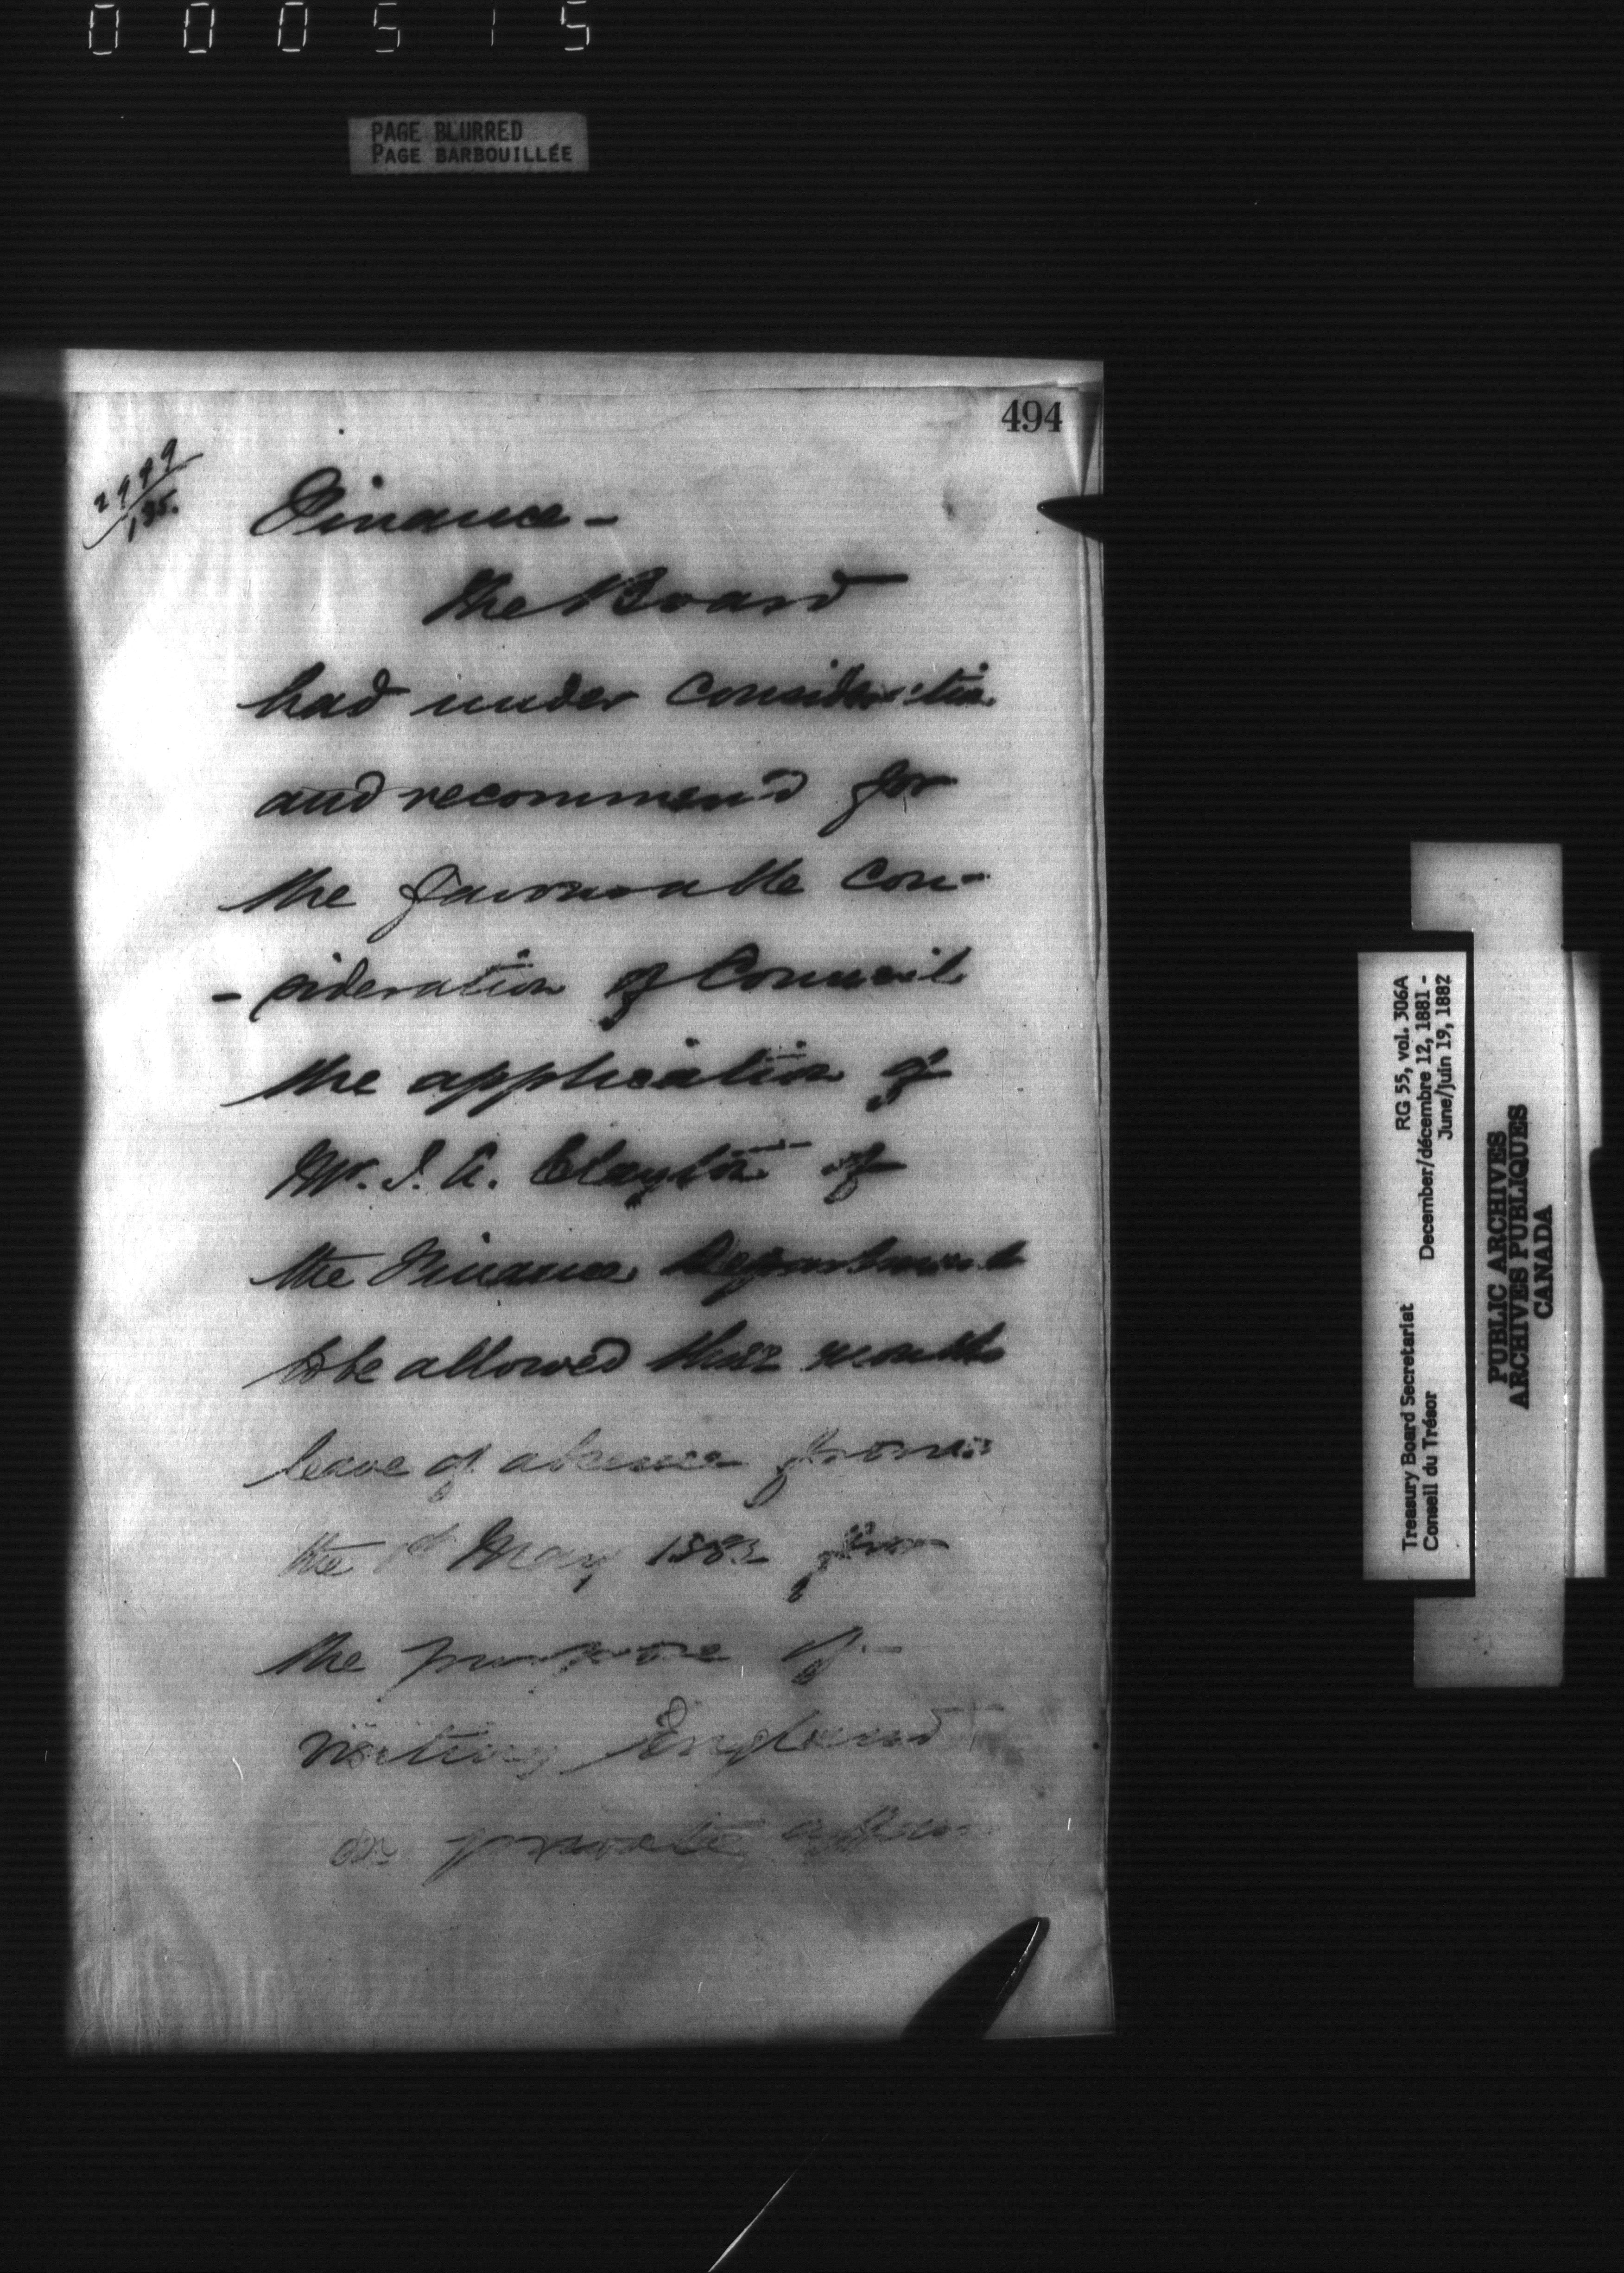 0 0 0 5 1 5
PAGE BLURRED
PAGE BARBOUILLÉE
494
Finance -
the Board
had under consideration
and recommend for
the favourable con-
- sideration of Council
the application of
Mr. J. A. Clayton of
the Finance Department
to be allowed three months
leave of absence from
the 1st May 1882 for
the purpose of
visiting England
on private
Treasury Board Secretariat RG 55, vol. 306A
Conseil du Trésor December/décembre 12, 1881 -
June/juin 19, 1882
PUBLIC ARCHIVES
ARCHIVES PUBLIQUES
CANADA